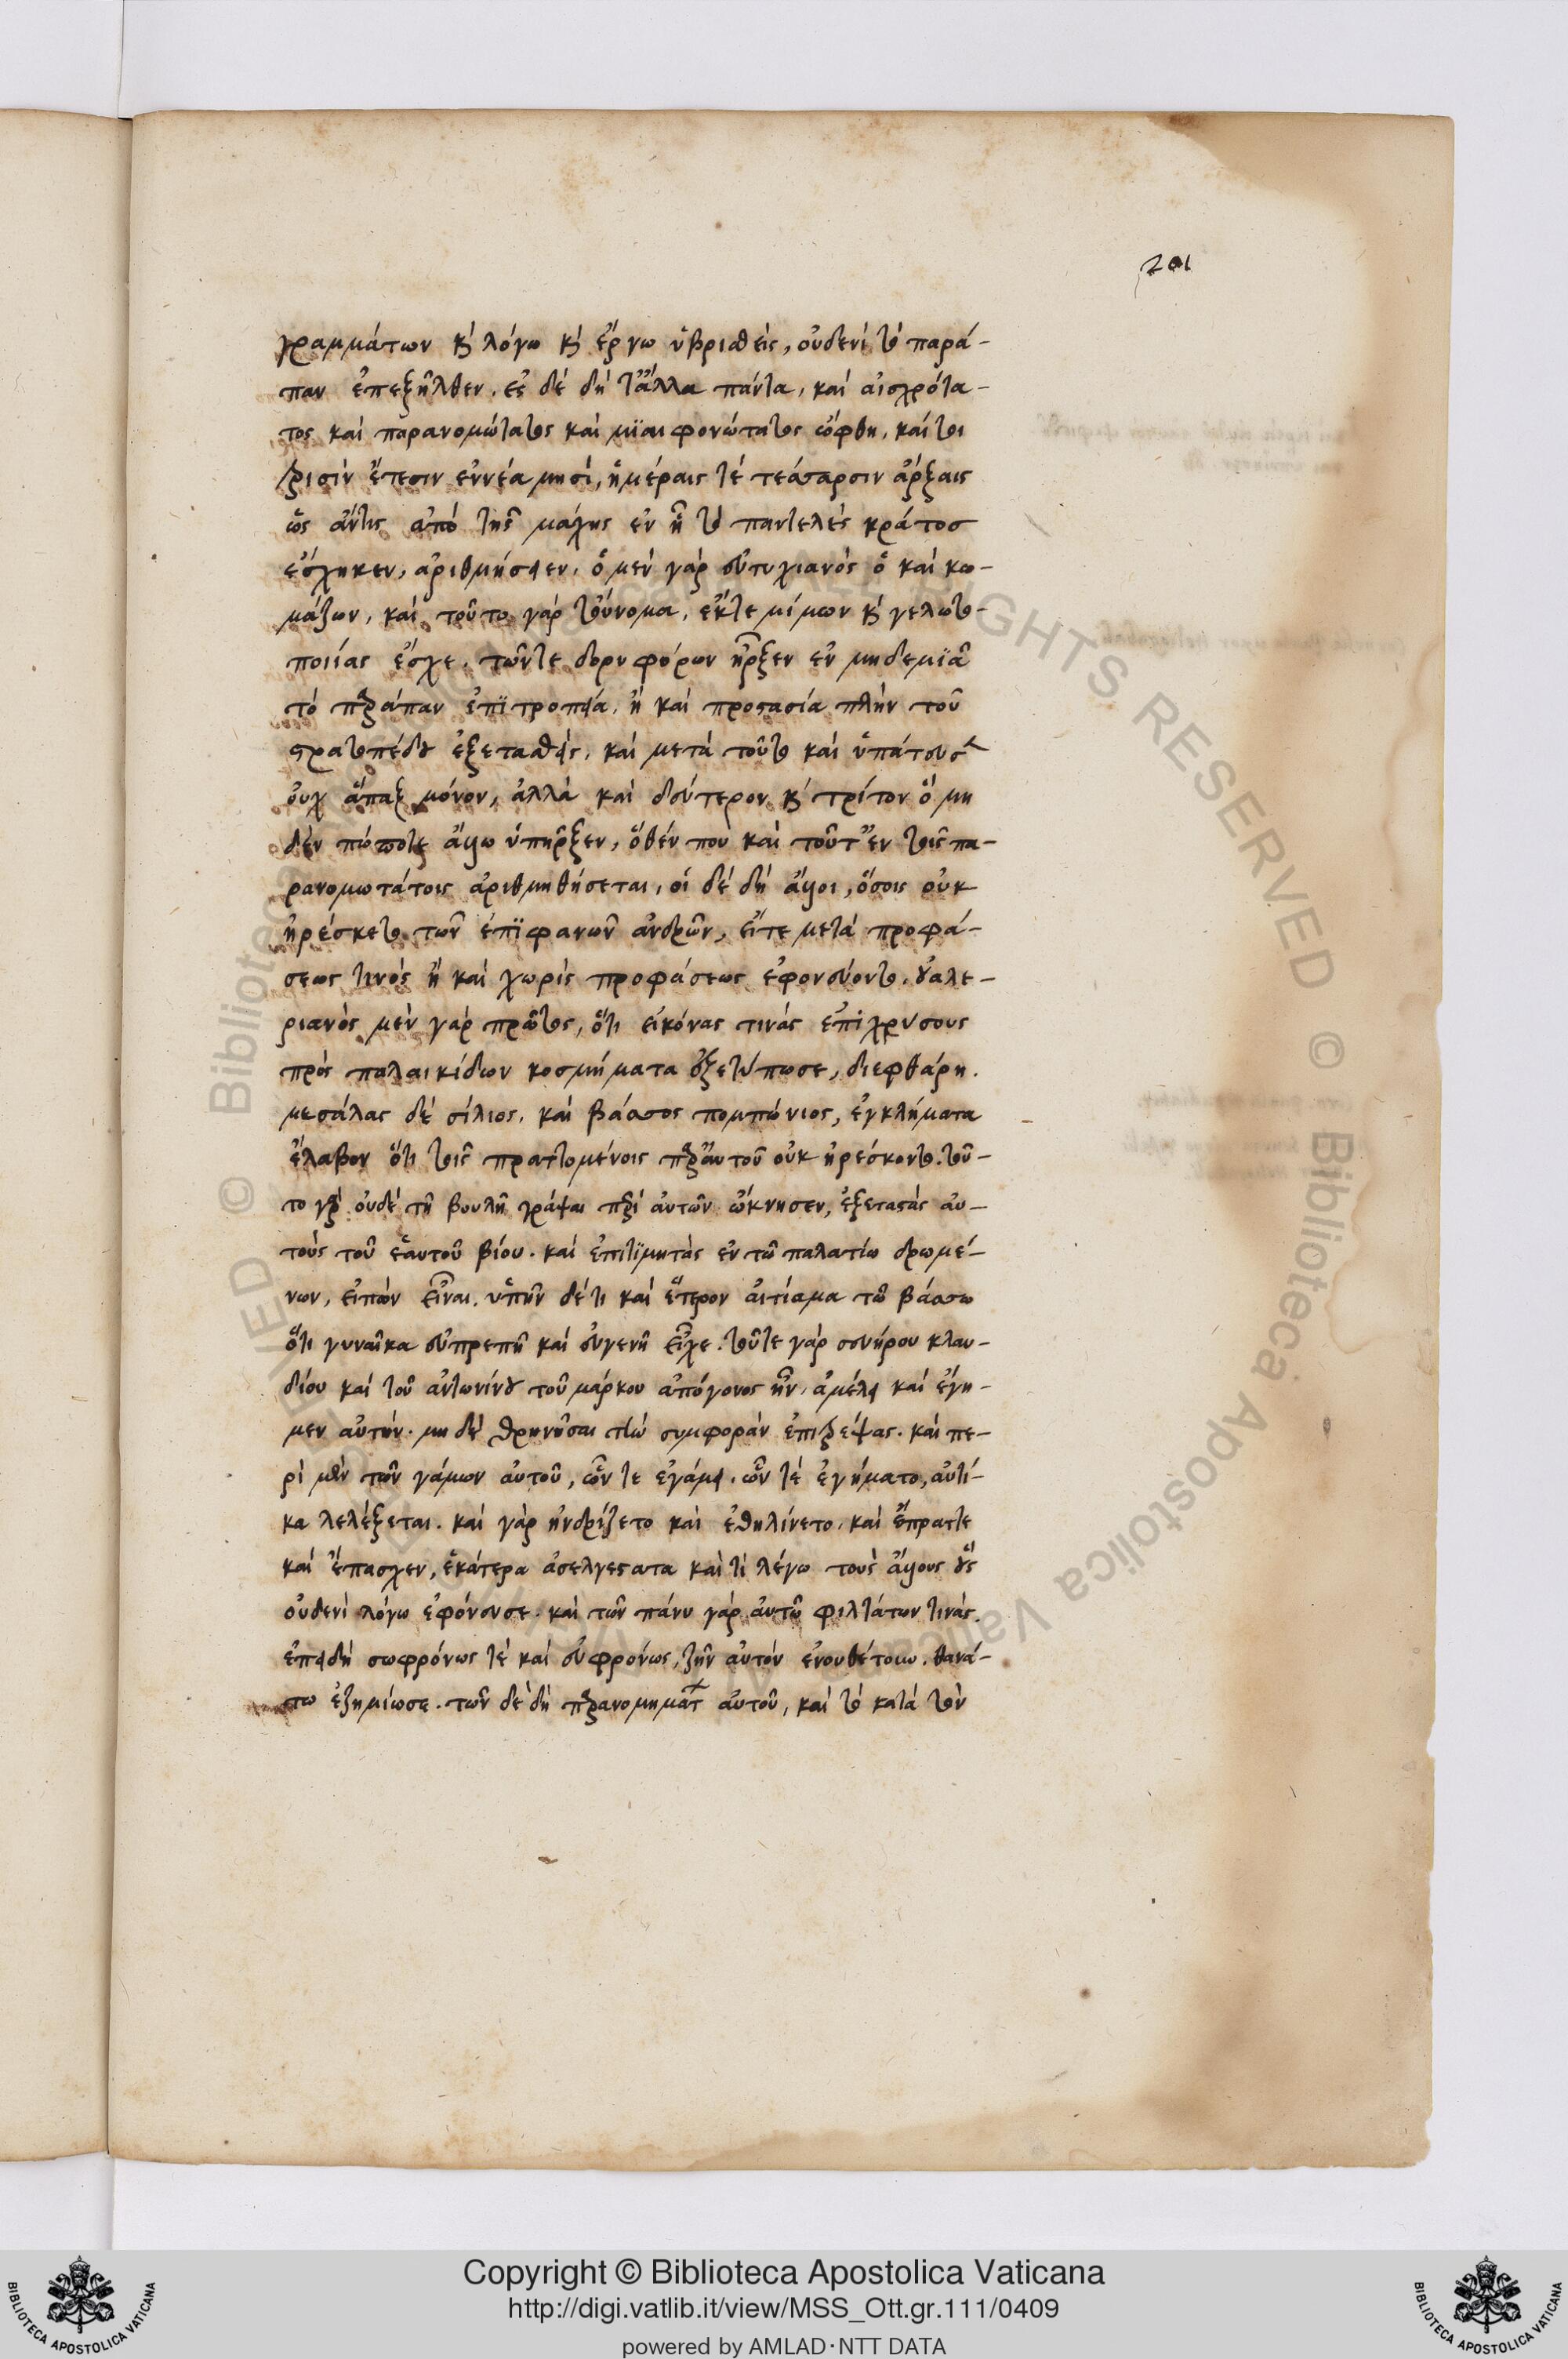 201
γραμμάτων κ λόγω κ ἔργω ὑβρισθεὶς, οὐδενὶ τὸ παρά-
παν ἐπεξῆλθεν. ἐς δὲ δὴ τἆλλα πάντα, καὶ αἰσχρότα-
τος καὶ παρανομώτατος καὶ μϊαιφονώτατος ὤφθη. καὶ τοι
τρισὶν ἔτεσιν ἐννέα μησὶ, ἡμέραις τὲ τέσσαρσιν ἄρξαις
ὥς ἄν τις ἀπὸ τῆς μάχης ἐν ἧ τὸ παντελὲς κράτοσ
ἔσχηκεν, ἀριθμήσειεν. ὁ μὲν γὰρ εὐτυχιανὸς ὁ καὶ κω-
μάζων, καὶ τοῦτο γὰρ τοὔνομα, ἔκτε μίμων κ γελωτο-
ποιίας ἔσχε. τῶν τε δορυφόρων ἦρξεν ἐν μηδεμϊᾶ
τὸ παράπαν ἐπϊτροπεία, ἢ καὶ προστασία πλὴν τοῦ
στρατοπέδου ἐξετασθεὶς. καὶ μετὰ τοῦτο καὶ ὑπάτευσε
οὐχ ἅπαξ μόνον, ἀλλὰ καὶ δεύτερον κ τρίτον ὃ μη
δὲν πώποτε ἄλλω ὑπῆρξεν, ὅθέν που καὶ τοῦτ' ἐν τοῖς πα-
ρανομωτάτοις ἀριθμηθήσεται. οἱ δὲ δὴ ἄλλοι, ὅσοις οὐκ
ἠρέσκετο τῶν ἐπϊφανῶν ἀνδρῶν, εἴτε μετὰ προφά-
σεως τινὸς ἢ καὶ χωρὶς προφάσεως ἐφονεύοντο. οὐαλε-
ριανὸς μὲν γὰρ πρῶτος, ὅτι εἰκόνας τινὰς ἐπιχρύσους
πρὸς παλαικίδων κοσμήματα ἐξετύπωσε, διεφθάρη.
μεσάλας δὲ σίλιος. καὶ βάσσος πομπώνιος, ἐγκλήματα
ἔλαβον ὅτι τοῖς πραττομένοις παρ' αὐτοῦ οὐκ ἠρέσκοντο. τοῦ-
το γὰρ οὐδὲ τῆ βουλῆ γράψαι περὶ αὐτῶν ὤκνησεν, ἐξεταστὰς αὐ-
τοὺς τοῦ ἑαυτοῦ βίου. καὶ ἐπιτϊμητὰς ἐν τῶ παλατίω δρωμέ-
νων, εἰπὼν εἶναι. ὑπῆν δέ τι καὶ ἕτερον αἰτίαμα τῶ βάσσω
ὅτι γυναῖκα εὐπρεπῆ καὶ εὐγενῆ εἶχε. τοῦτε γὰρ σευήρου κλαυ-
δίου καὶ τοῦ ἀντωνίνου τοῦ μάρκου ἀπόγονος ἦν. ἀμέλει καὶ ἔγη-
μεν αὐτήν. μη δὲ θρηνῆσαι τὴν συμφορὰν ἐπιτρέψας. καὶ πε-
ρὶ μὲν τῶν γάμων αὐτοῦ, ὧν τε ἐγάμει. ὧν τὲ ἐγήματο, αὐτί-
κα λελέξεται. καὶ γὰρ ἠνδρίζετο καὶ ἐθηλύνετο. καὶ ἔπραττε
καὶ ἔπασχεν, ἑκάτερα ἀσελγέστατα καὶ τὶ λέγω τοὺς ἄλλους οὓς
οὐδενὶ λόγω ἐφόνευσε. καὶ τῶν πάνυ γὰρ αὐτῶ φιλτάτων τινὰς.
ἐπειδὴ σωφρόνως τὲ καὶ εὐφρόνως, ζῆν αὐτὸν ἐνουθέτουν. θανά-
τω ἐζημίωσε. τῶν δὲ δὴ παρανομημάτ αὐτοῦ, καὶ τὸ κατὰ τὸν
Copyright © Biblioteca Apostolica Vaticana
http://digi.vatlib.it/view/MSS_Ott.gr.111/0409
powered by AMLAD·NTT DATA